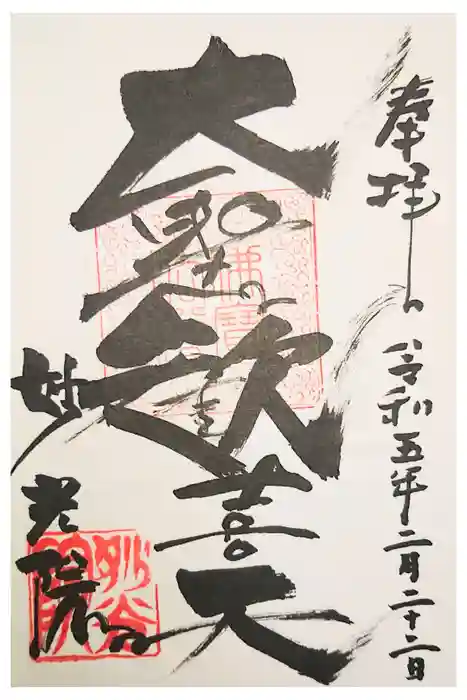 奉拝
令和五年二月二十二日
大聖歓喜天
妙光院